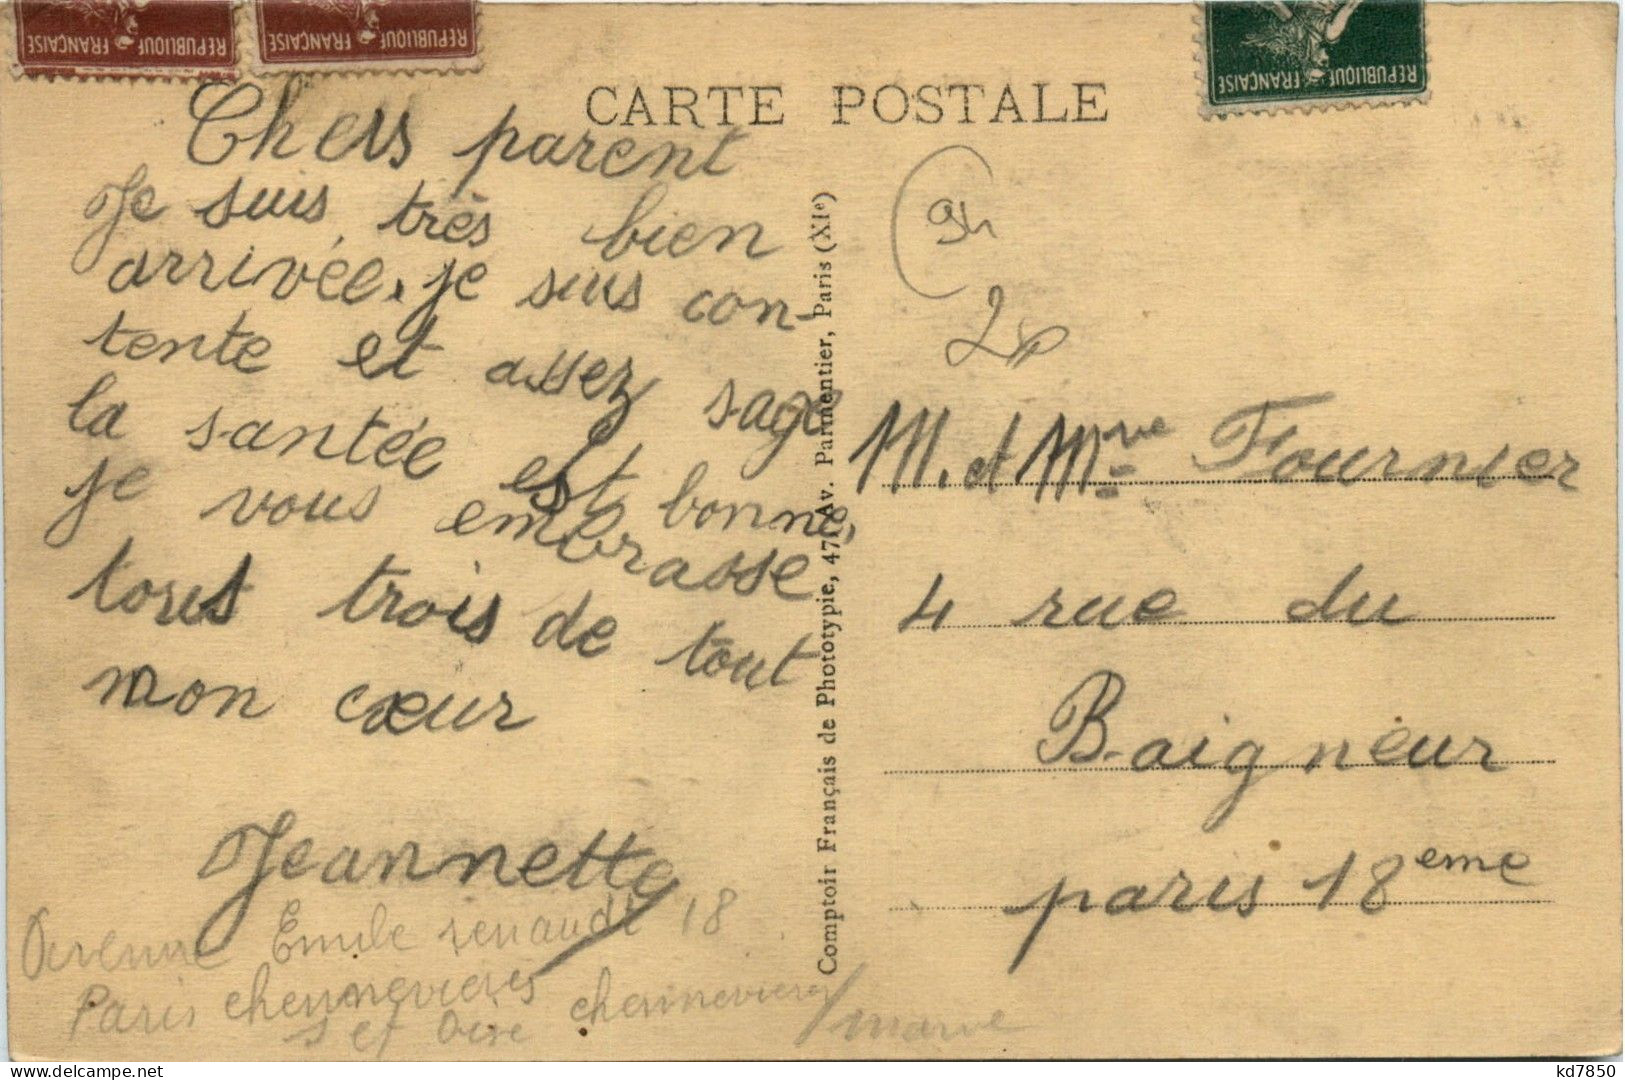 REPUBLIQUE FRANÇAISE
REPUBLIQUE FRANÇAISE
REPUBLIQUE FRANÇAISE
CARTE POSTALE
Chers parent
Je suis très bien
arrivée. je suis con-
tente et assez sage
la santée est bonne,
je vous embrasse
tous trois de tout
mon cœur
Jeannette
Avenue Emile renault 18
Paris chennevieres chennevieres/marne
S et Oise
Comptoir Français de Phototypie, 47, Av. Parmentier, Paris (XIe)
M. et Mme Fournier
4 rue du
Baigneur
paris 18eme
kd7850